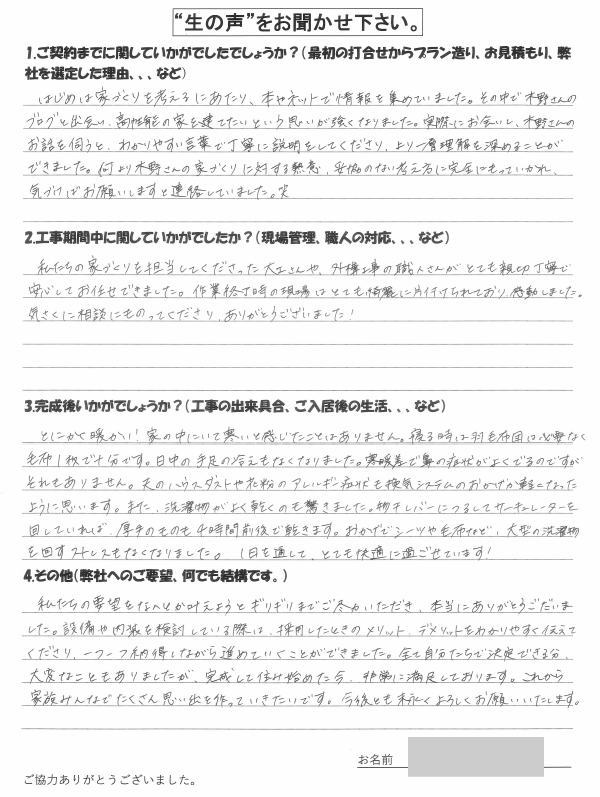 “生の声”をお聞かせ下さい。
1.ご契約までに関していかがでしたでしょうか？（最初の打合せからプラン造り、お見積もり、弊
社を選定した理由、、、など）
はじめは家づくりを考えるにあたり、本やネットで情報を集めていました。その中で木野さんの
ブログと出会い、高性能の家を建てたいという思いが強くなりました。実際にお会いし、木野さんの
お話を伺うと、わかりやすい言葉で丁寧に説明をしてくださり、より一層理解を深めることが
できました。何より木野さんの家づくりに対する熱意、妥協のない考え方に完全にもっていかれ、
気づけばお願いしますと連絡していました。笑
2.工事期間中に関していかがでしたか？（現場管理、職人の対応、、、など）
私たちの家づくりを担当してくださった大工さんや、外構工事の職人さんがとても親切丁寧で
安心してお任せできました。作業終了時の現場はとても綺麗に片付けられており、感動しました。
気さくに相談にものってくださり、ありがとうございました！
3.完成後いかがでしょうか？（工事の出来具合、ご入居後の生活、、、など）
とにかく暖かい！家の中にいて寒いと感じたことはありません。寝る時は羽毛布団は必要なく
毛布1枚で十分です。日中の手足の冷えもなくなりました。寒暖差で鼻の症状がよくでるのですが
それもありません。夫のハウスダストや花粉のアレルギー症状も換気システムのおかげか軽くなった
ように思います。また、洗濯物がよく乾くのも驚きました。物干しバーにつるしてサーキュレーターを
回していれば、厚手のものも4時間前後で乾きます。おかげでシーツや毛布など、大型の洗濯物
を回すストレスもなくなりました。1日を通して、とても快適に過ごせています！
4.その他（弊社へのご要望、何でも結構です。）
私たちの要望をなんとか叶えようとギリギリまでご尽力いただき、本当にありがとうございま
した。設備や内装を検討している際は、採用したときのメリット、デメリットをわかりやすく伝えて
くださり、一つ一つ納得しながら進めていくことができました。全て自分たちで決定できる分、
大変なこともありましたが、完成して住み始めた今、非常に満足しております。これから
家族みんなでたくさん思い出を作っていきたいです。今後とも末永くよろしくお願いいたします。
お名前
ご協力ありがとうございました。